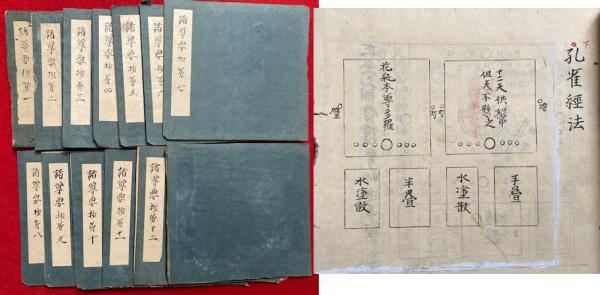 諸尊要抄第一
諸尊要抄第二
諸尊要抄第三
諸尊要抄第四
諸尊要抄第五
諸尊要抄第六
諸尊要抄第七
諸尊要抄第八
諸尊要抄第九
諸尊要抄第十
諸尊要抄第十一
諸尊要抄第十二
下
孔雀經法
十二天供如常
但天不懸之
半疊
水塗散
半疊
水塗散